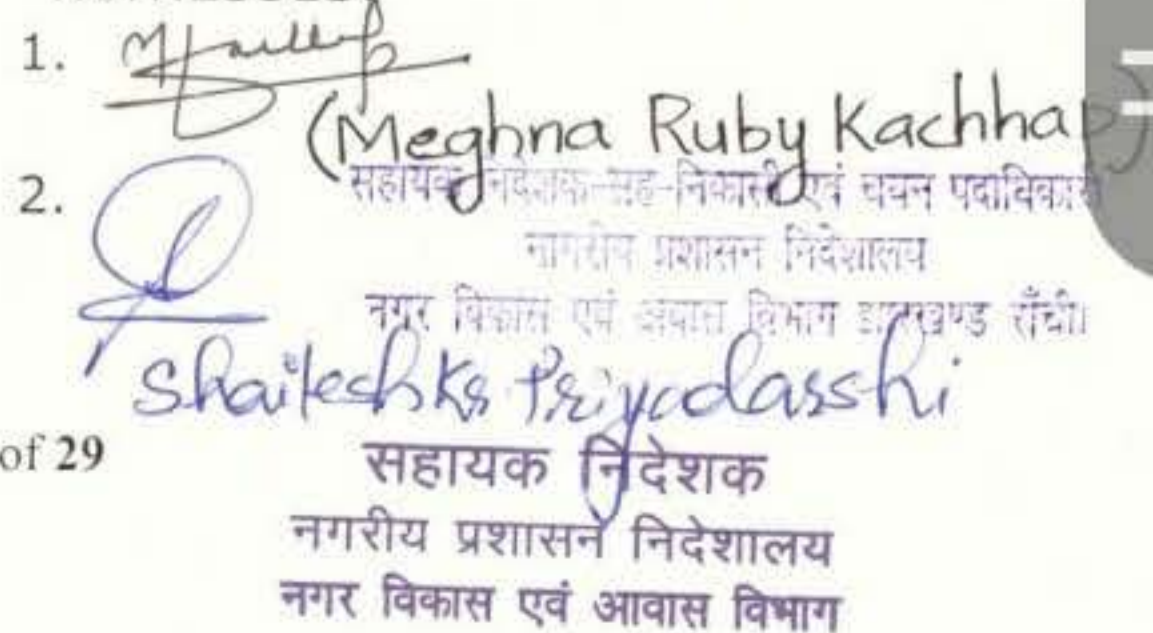 1.
(Meghna Ruby Kachhap)
2.
सहायक निदेशक-सह-निकासी एवं व्ययन पदाधिकारी
नागरीय प्रशासन निदेशालय
नगर विकास एवं आवास विभाग झारखण्ड राँची।
Shailesh Kr Priyadarshi
of 29
सहायक निदेशक
नगरीय प्रशासन निदेशालय
नगर विकास एवं आवास विभाग